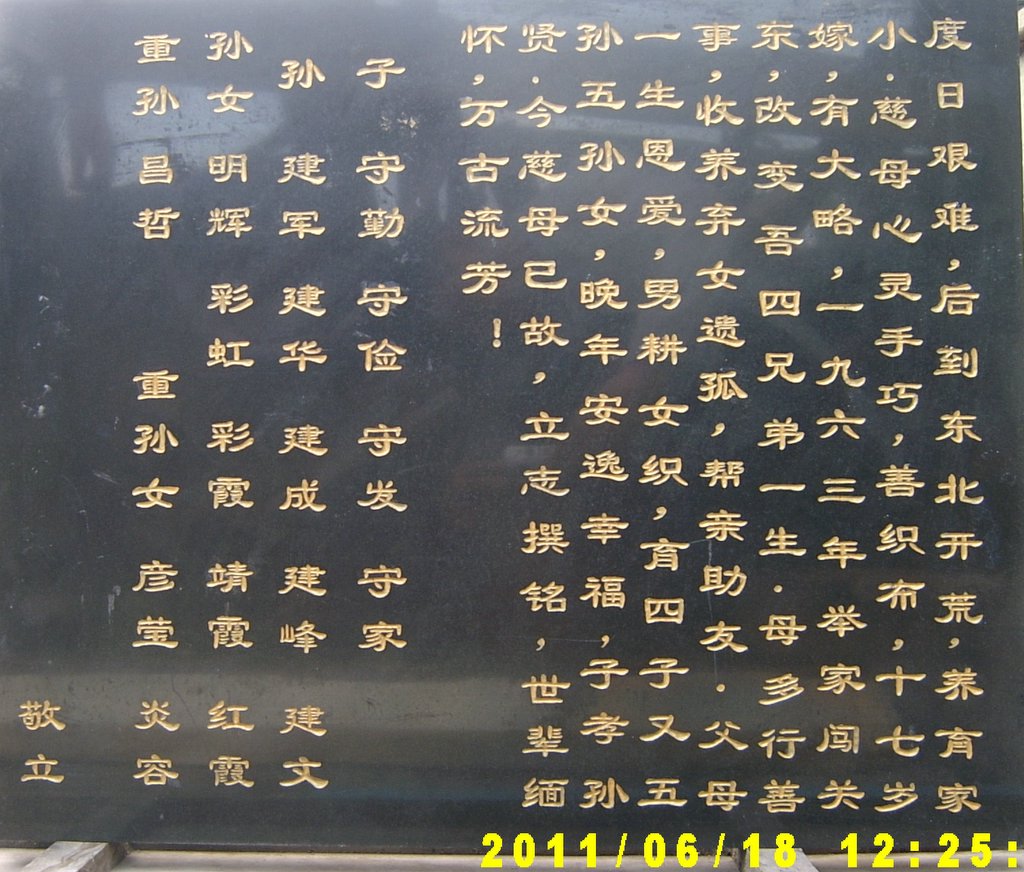 度日艰难,后到东北开荒,养育家
小.慈母心灵手巧,善织布,十七岁
嫁,有大略,一九六三年举家闯关
东,改变吾四兄弟一生.母多行善
事,收养弃女遗孤,帮亲助友.父母
一生恩爱,男耕女织,育四子又五
孙五孙女,晚年安逸幸福,子孝孙
贤.今慈母已故,立志撰铭,世辈缅
怀,万古流芳!
子 守勤 守俭 守发 守家
孙 建军 建华 建成 建峰 建文
孙女 明辉 彩虹 彩霞 靖霞 红霞
重孙 昌哲 重孙女 彦莹 炎容
敬立
2011/06/18 12:25: